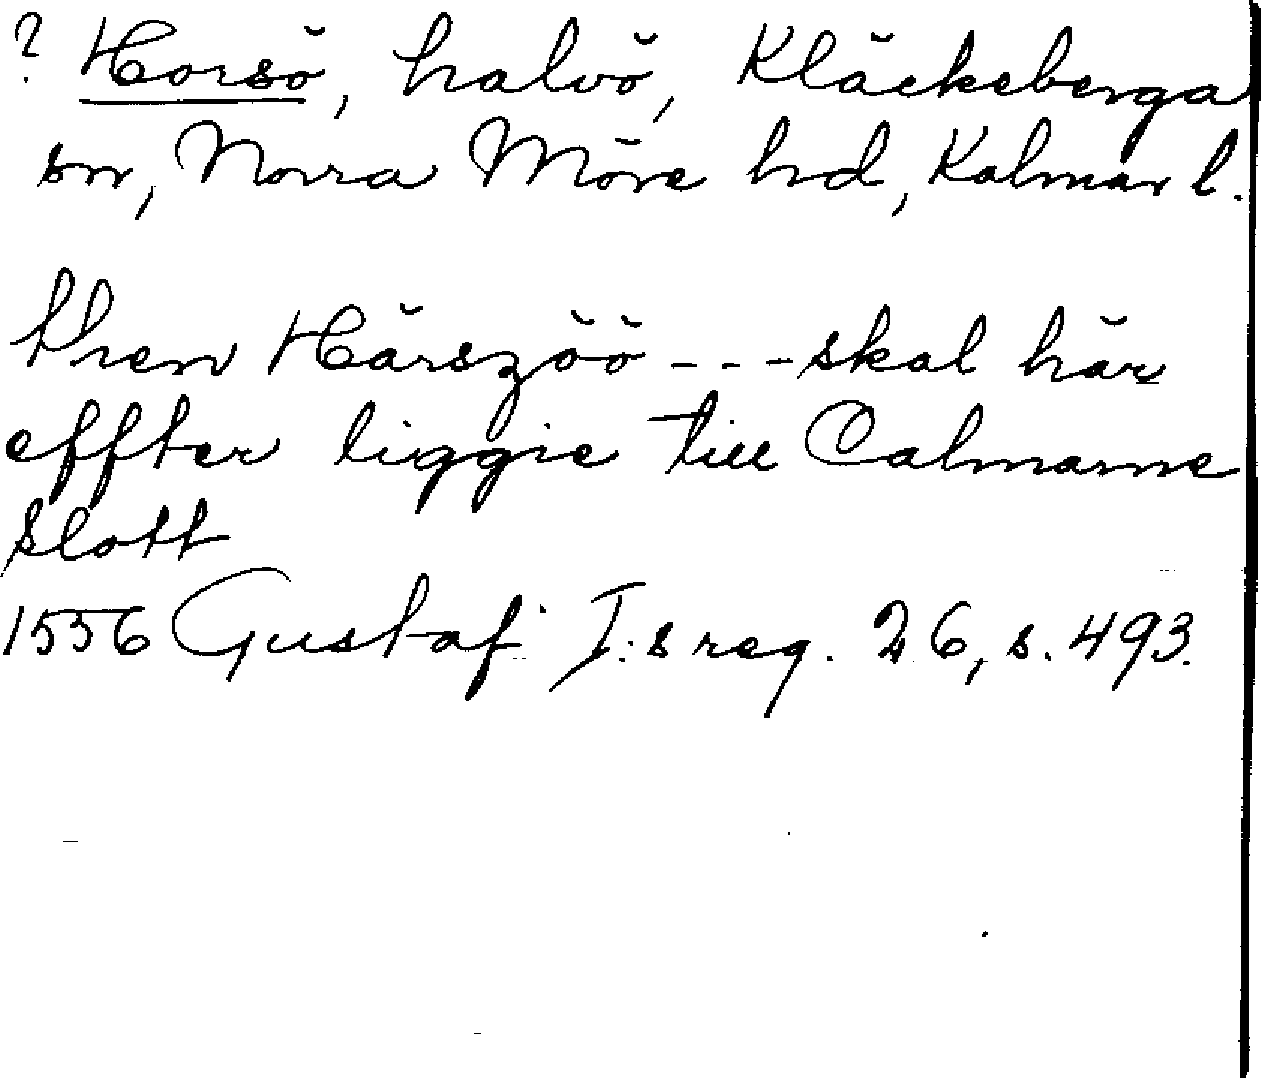 ? Horsö, halvö, Kläckeberga
sn, Norra Möre hd, Kalmar l.
then Härszöö - - - skal här
effter liggie till Calmarne
slott
1556 Gustaf I:s reg. 26, s. 493.